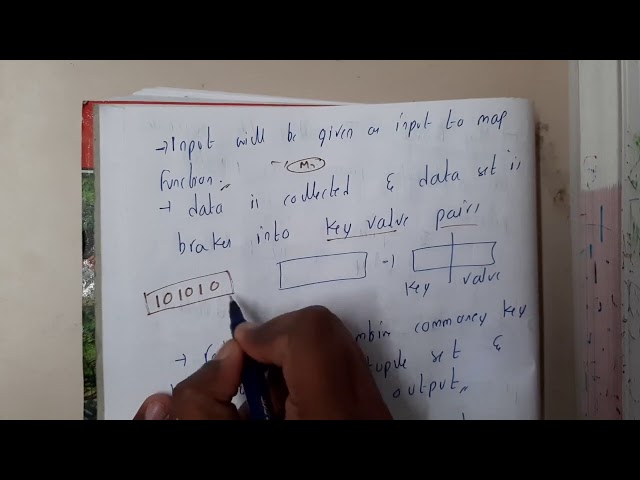 → Input will be given as input to map
function.
→ data is collected & data set is
brakes into key value pairs
101010
→
key value
→ combin commaney key
tuple set &
output